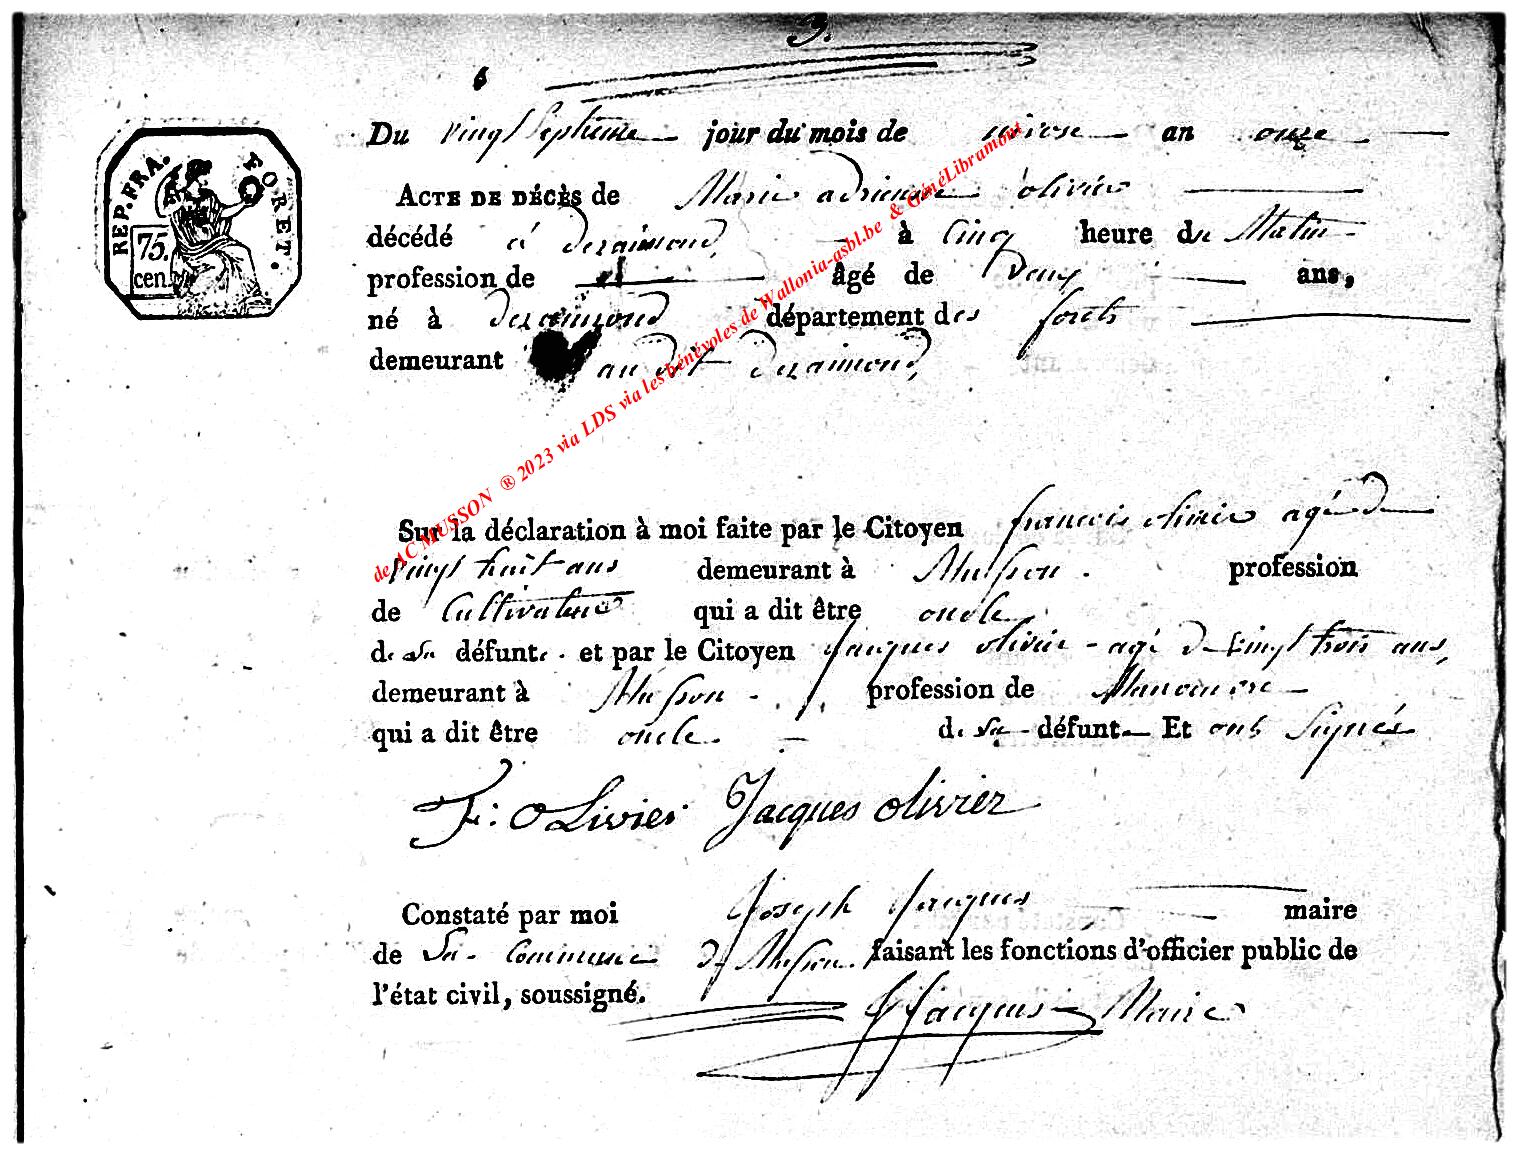 3.
6
REP. FRA.
FORET.
75.
cen.
Du vingt Septieme jour du mois de nivose an onze
ACTE DE DÉCÈS de Marie adrienne olivier
décédé à deraimond, à Cinq heure du Matin
profession de âgé de Deux ans,
né à deraimond département des forets
demeurant au dit deraimond,
Sur la déclaration à moi faite par le Citoyen francois olivier agé de
vingt huit ans demeurant à Musson. profession
de Cultivateur qui a dit être oncle
de la défunte. et par le Citoyen Jacques olivier - agé de vingt trois ans,
demeurant à Musson - profession de Manoeuvre
qui a dit être oncle. de la défunte Et ont Signés
F: OLivier Jacques olivier
Constaté par moi Joseph Jacques maire
de la Commune de Musson. faisant les fonctions d'officier public de
l'état civil, soussigné.
J Jacques Maire
de AC MUSSON ® 2023 via LDS via les bénévoles de Wallonia-asbl.be & GénéLibramont